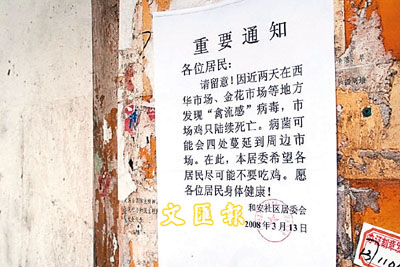 重要通知
各位居民：
请留意！因近两天在西
华市场、金花市场等地方
发现“禽流感”病毒，市
场鸡只陆续死亡。病菌可
能会四处蔓延到周边市
场。在此，本居委希望各
居民尽可能不要吃鸡。愿
各位居民身体健康！
和安社区居委会
2008年3月13日
文匯報